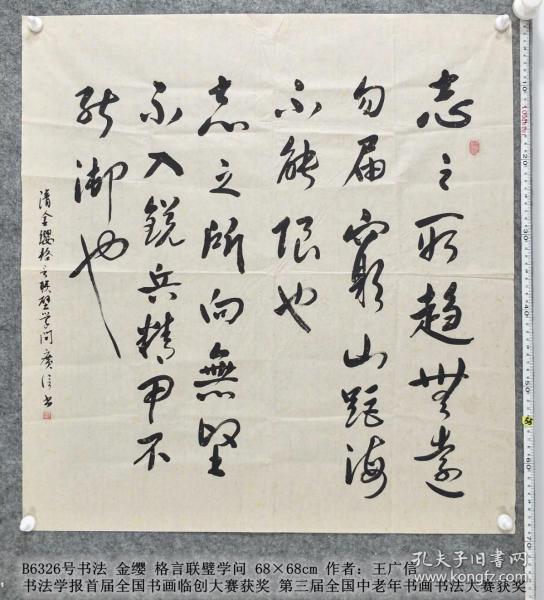 志之所趨無遠
勿届窮山距海
不能限也
志之所向無堅
不入銳兵精甲不
能御也
清金纓格言联璧学问廣信书
B6326号书法 金缨 格言联璧学问 68×68cm 作者：王广信
书法学报首届全国书画临创大赛获奖 第三届全国中老年书画书法大赛获奖
孔夫子旧书网